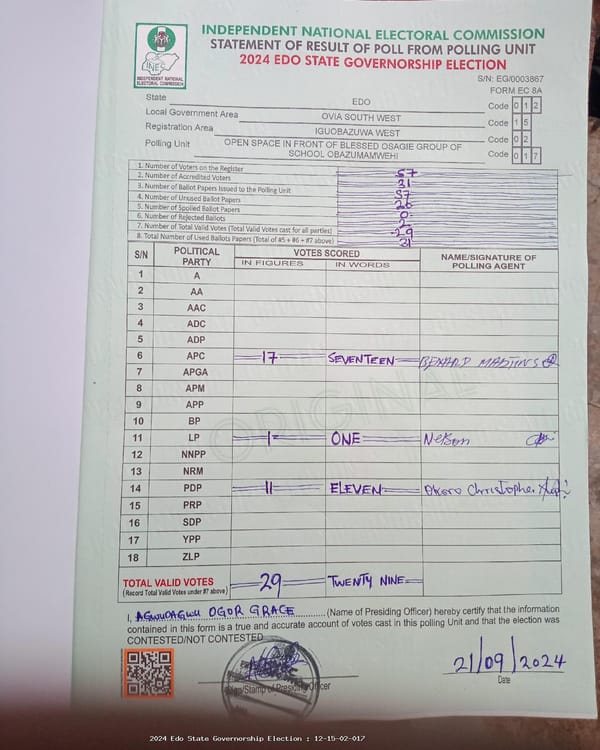 INDEPENDENT NATIONAL ELECTORAL COMMISSION
STATEMENT OF RESULT OF POLL FROM POLLING UNIT
2024 EDO STATE GOVERNORSHIP ELECTION
INEC
INDEPENDENT NATIONAL
ELECTORAL COMMISSION
S/N: EG/0003867
FORM EC 8A
State EDO Code 0 1 2
Local Government Area OVIA SOUTH WEST Code 1 5
Registration Area IGUOBAZUWA WEST Code 0 2
Polling Unit OPEN SPACE IN FRONT OF BLESSED OSAGIE GROUP OF SCHOOL OBAZUMAMWEHI Code 0 1 7
1. Number of Voters on the Register 57
2. Number of Accredited Voters 31
3. Number of Ballot Papers Issued to the Polling Unit 57
4. Number of Unused Ballot Papers 26
5. Number of Spoiled Ballot Papers 0
6. Number of Rejected Ballots 2
7. Number of Total Valid Votes (Total Valid Votes cast for all parties) 29
8. Total Number of Used Ballots Papers (Total of #5 + #6 + #7 above) 31
S/N POLITICAL PARTY VOTES SCORED NAME/SIGNATURE OF POLLING AGENT
IN FIGURES IN WORDS
1 A
2 AA
3 AAC
4 ADC
5 ADP
6 APC 17 SEVENTEEN
7 APGA
8 APM
9 APP
10 BP
11 LP 1 ONE Nelson
12 NNPP
13 NRM
14 PDP 11 ELEVEN Okoro Christopher
15 PRP
16 SDP
17 YPP
18 ZLP
ORIGINAL
TOTAL VALID VOTES 29 TWENTY NINE
(Record Total Valid Votes under #7 above)
I, OGOR GRACE (Name of Presiding Officer) hereby certify that the information
contained in this form is a true and accurate account of votes cast in this polling Unit and that the election was
CONTESTED/NOT CONTESTED
21/09/2024
Sign/Stamp of Presiding Officer Date
2024 Edo State Governorship Election : 12-15-02-017